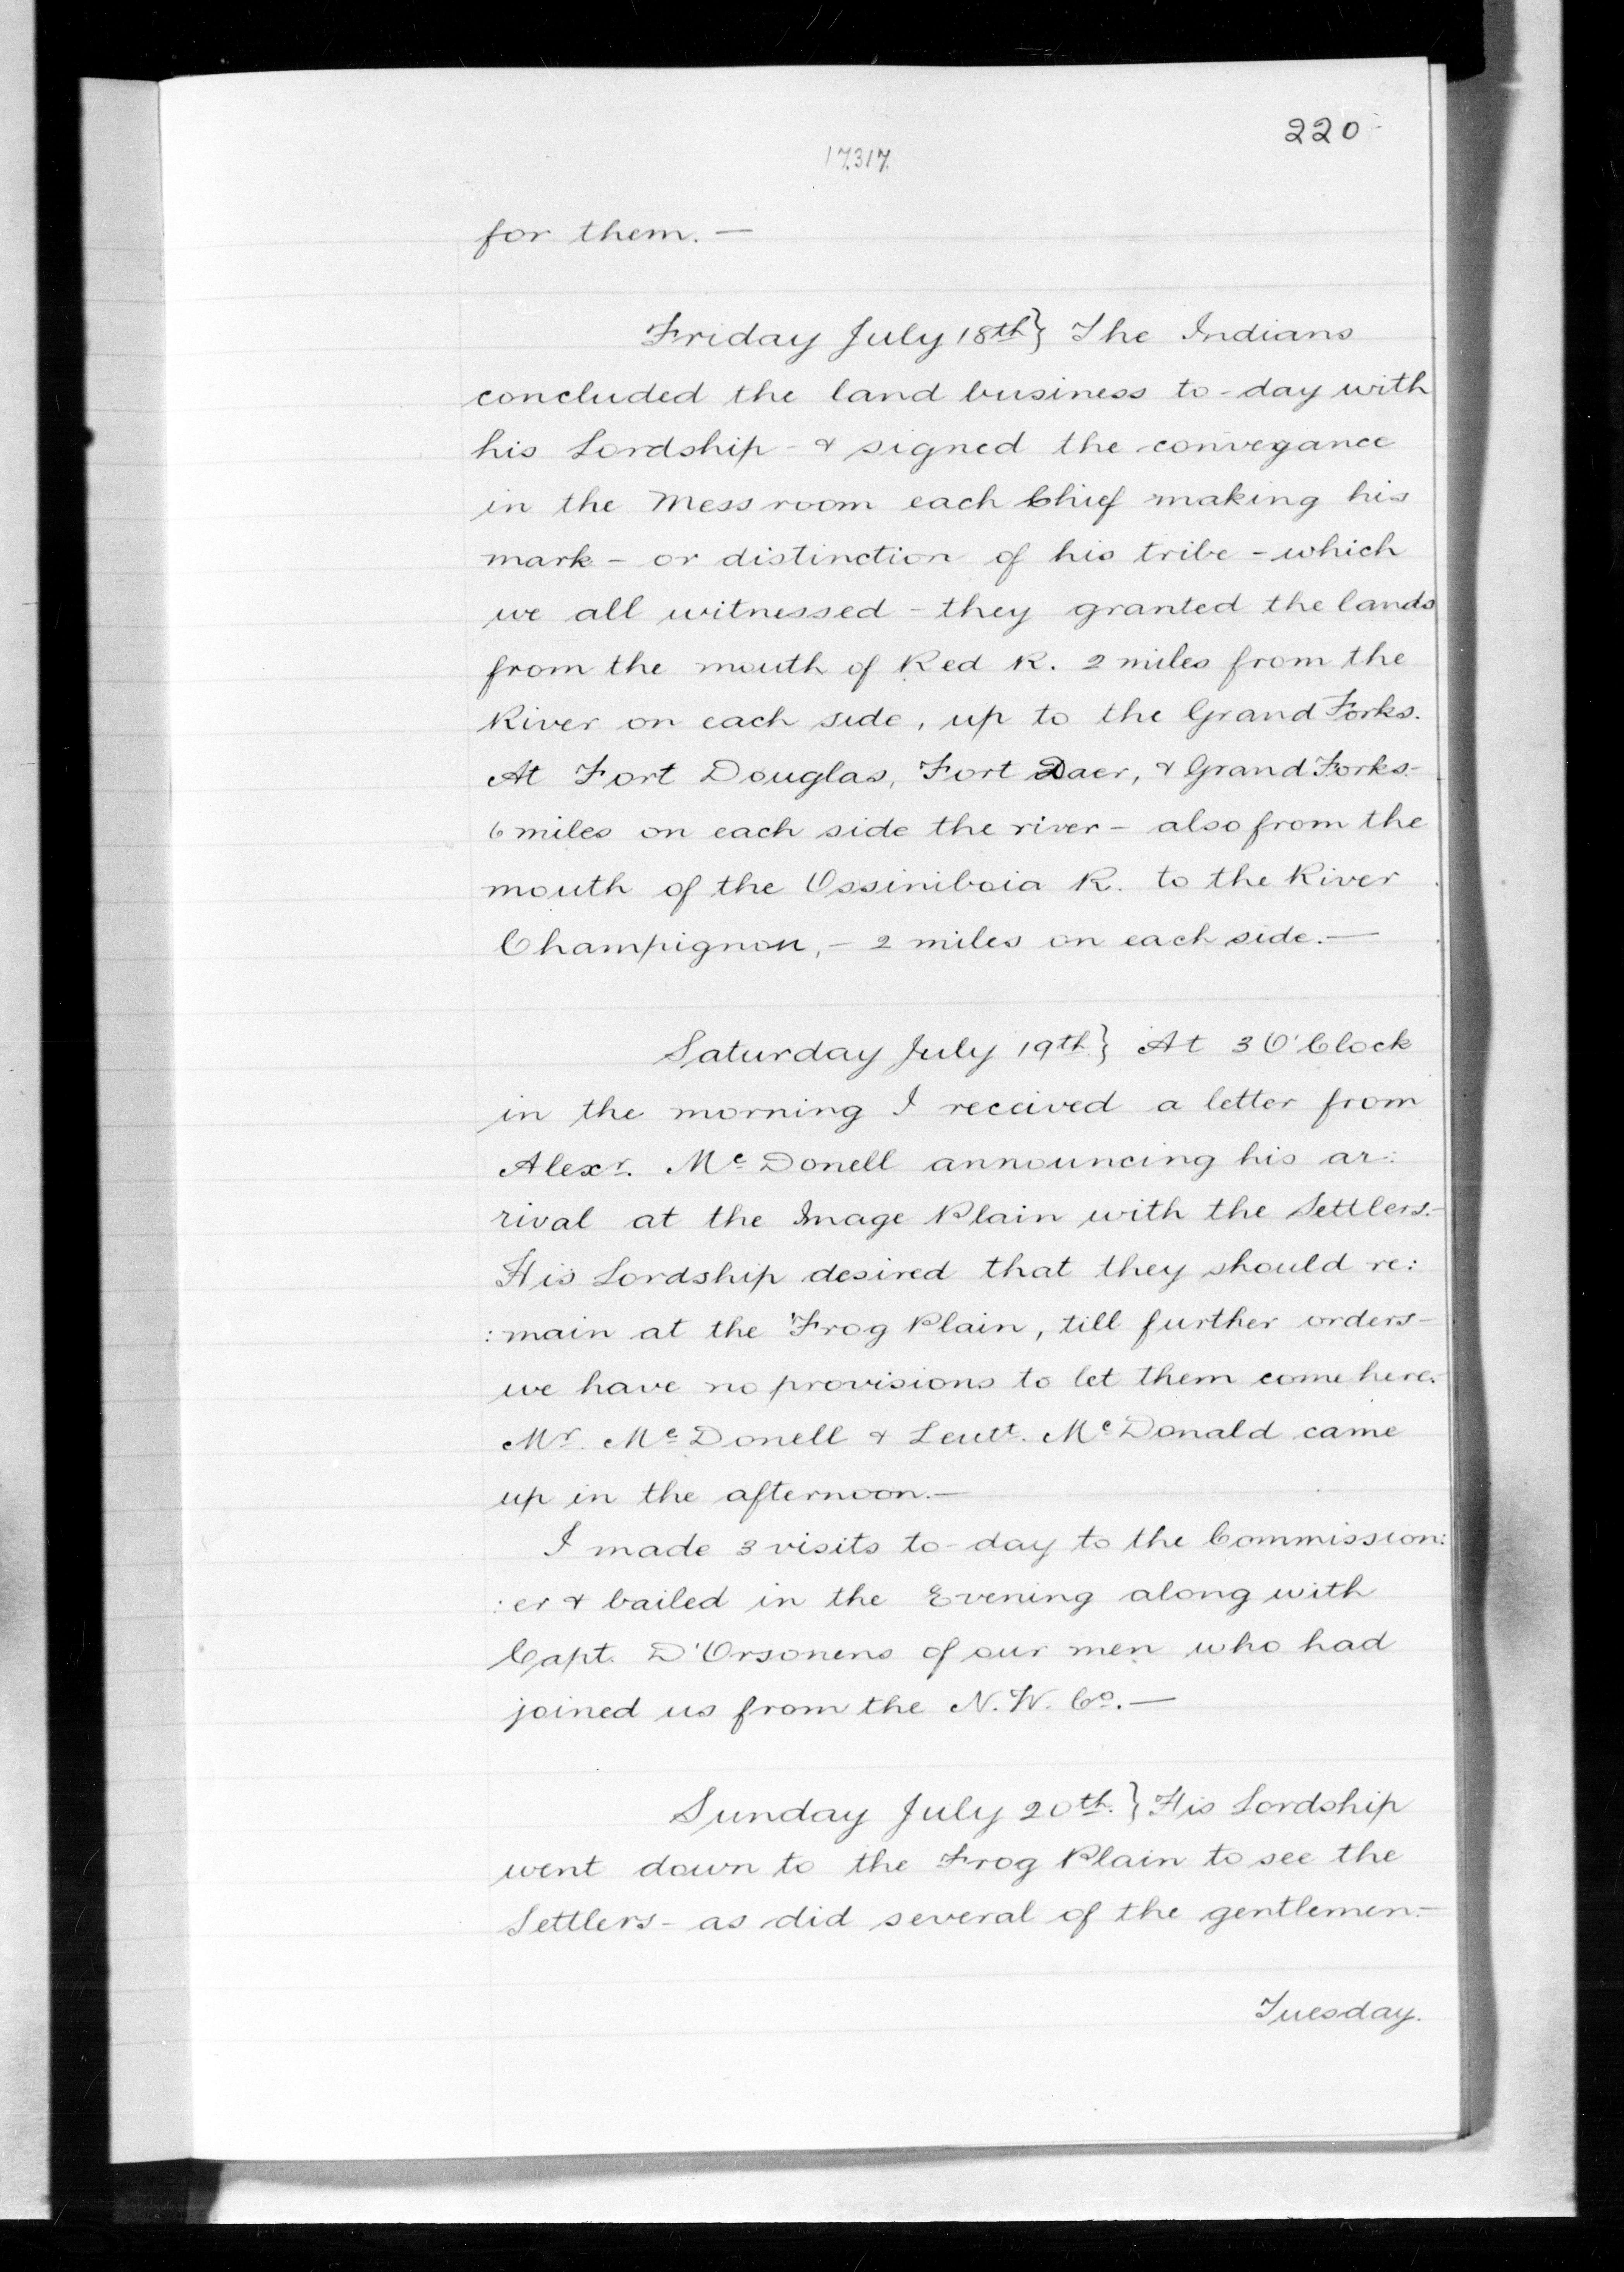 220
17317
for them. —
Friday July 18th} The Indians
concluded the land business to-day with
his Lordship - & signed the conveyance
in the Mess room each Chief making his
mark - or distinction of his tribe - which
we all witnessed - they granted the lands
from the mouth of Red R. 2 miles from the
River on each side, up to the Grand Forks.
At Fort Douglas, Fort Daer, & Grand Forks.-
6 miles on each side the river - also from the
mouth of the Ossiniboia R. to the River
Champignon, - 2 miles on each side. —
Saturday July 19th} At 3 O'Clock
in the morning I received a letter from
Alexr. Mc Donell announcing his ar:
rival at the Image Plain with the Settlers.-
His Lordship desired that they should re:
:main at the Frog Plain, till further orders -
we have no provisions to let them come here.-
Mr. Mc Donell & Leutt. McDonald came
up in the afternoon. —
I made 3 visits to-day to the Commission:
:er & bailed in the Evening along with
Capt. D'Orsonens of our men who had
joined us from the N.W. Co. —
Sunday July 20th.} His Lordship
went down to the Frog Plain to see the
Settlers - as did several of the gentlemen.-
Tuesday.